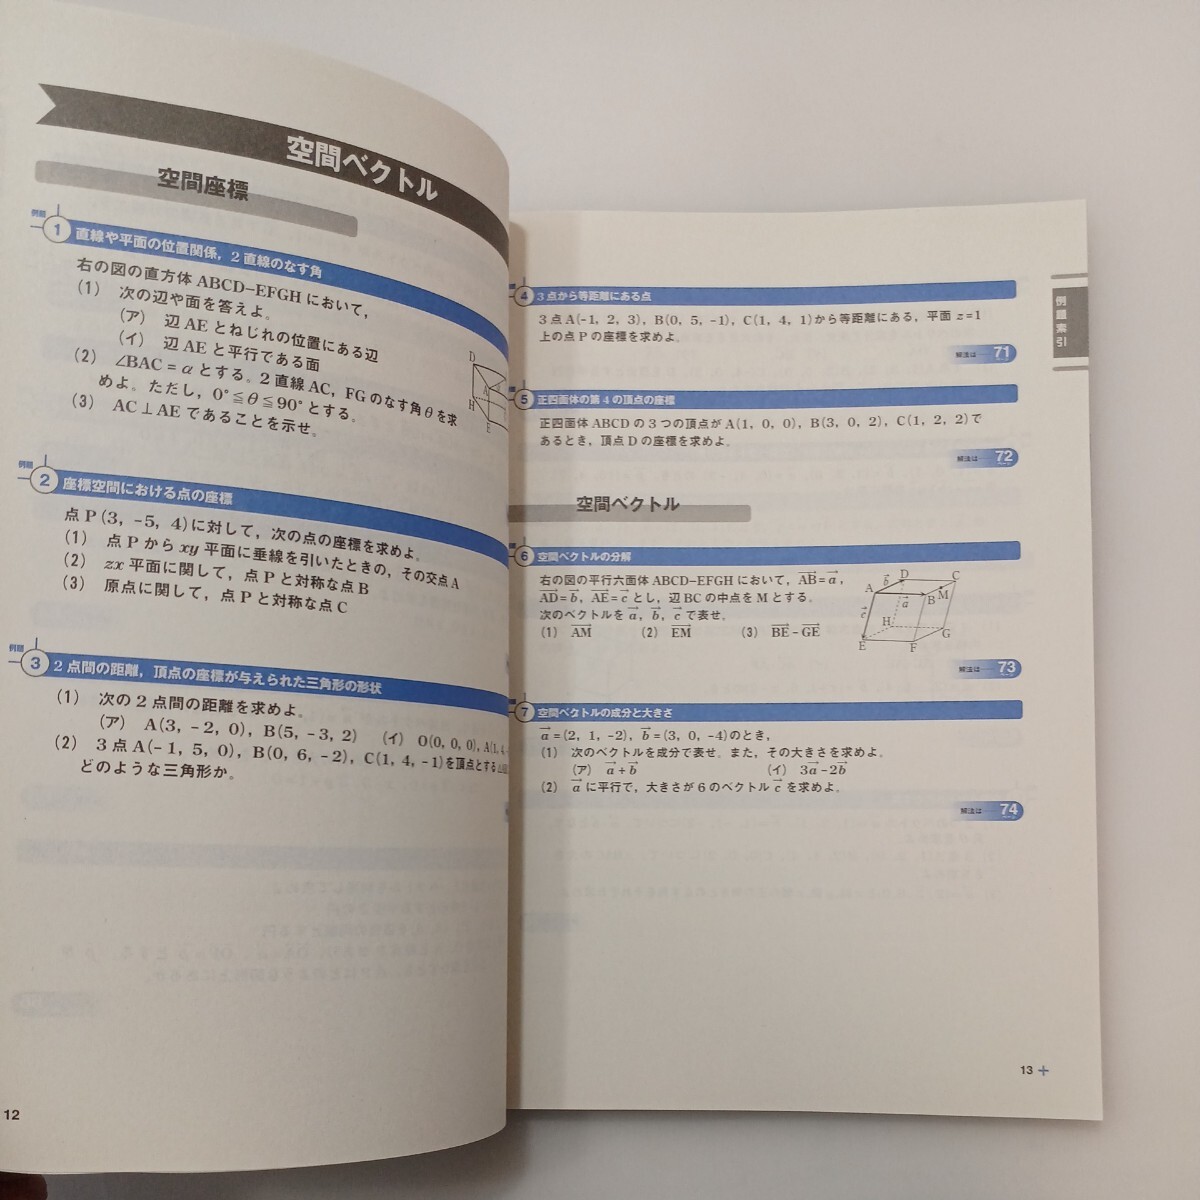 空間ベクトル
空間座標
例題 1 直線や平面の位置関係，2直線のなす角
右の図の直方体 ABCD−EFGH において，
(1) 次の辺や面を答えよ。
(ア) 辺 AE とねじれの位置にある辺
(イ) 辺 AE と平行である面
(2) ∠BAC＝α とする。2直線 AC，FG のなす角 θ を求
めよ。ただし，0°≦θ≦90° とする。
(3) AC⊥AE であることを示せ。
D
A
H
E
例題 2 座標空間における点の座標
点 P(3, −5, 4) に対して，次の点の座標を求めよ。
(1) 点 P から xy 平面に垂線を引いたときの，その交点 A
(2) zx 平面に関して，点 P と対称な点 B
(3) 原点に関して，点 P と対称な点 C
例題 3 2点間の距離，頂点の座標が与えられた三角形の形状
(1) 次の2点間の距離を求めよ。
(ア) A(3, −2, 0), B(5, −3, 2) (イ) O(0, 0, 0), A(1, 4,
(2) 3点 A(−1, 5, 0), B(0, 6, −2), C(1, 4, −1) を頂点とする
どのような三角形か。
12
4 3点から等距離にある点
3点 A(−1, 2, 3), B(0, 5, −1), C(1, 4, 1) から等距離にある，平面 z＝1
上の点 P の座標を求めよ。
解法は 71
5 正四面体の第4の頂点の座標
正四面体 ABCD の3つの頂点が A(1, 0, 0), B(3, 0, 2), C(1, 2, 2) で
あるとき，頂点 D の座標を求めよ。
解法は 72
空間ベクトル
6 空間ベクトルの分解
右の図の平行六面体 ABCD−EFGH において，AB→＝a→，
AD→＝b→，AE→＝c→ とし，辺 BC の中点を M とする。
次のベクトルを a→，b→，c→ で表せ。
(1) AM→ (2) EM→ (3) BE→−GE→
D C
b→
A a→ B M
c→
H G
E F
解法は 73
7 空間ベクトルの成分と大きさ
a→＝(2, 1, −2), b→＝(3, 0, −4) のとき，
(1) 次のベクトルを成分で表せ。また，その大きさを求めよ。
(ア) a→＋b→ (イ) 3a→−2b→
(2) a→ に平行で，大きさが 6 のベクトル c→ を求めよ。
解法は 74
例題索引
13